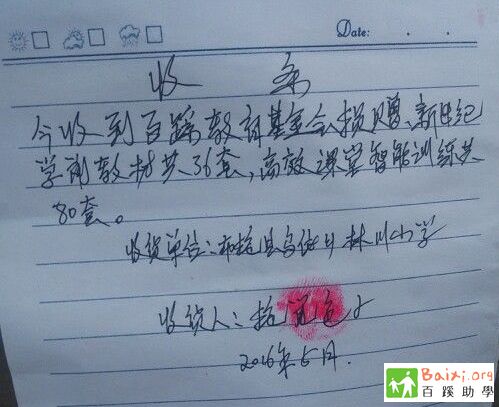 Date:
收条
今收到百蹊教育基金会捐赠新世纪
学前教材共36套,高效课堂智能训练共
80套。
收货单位:布拖县乌依乡林川小学
收货人:
2016年5月.
Baixi.org
百蹊助學